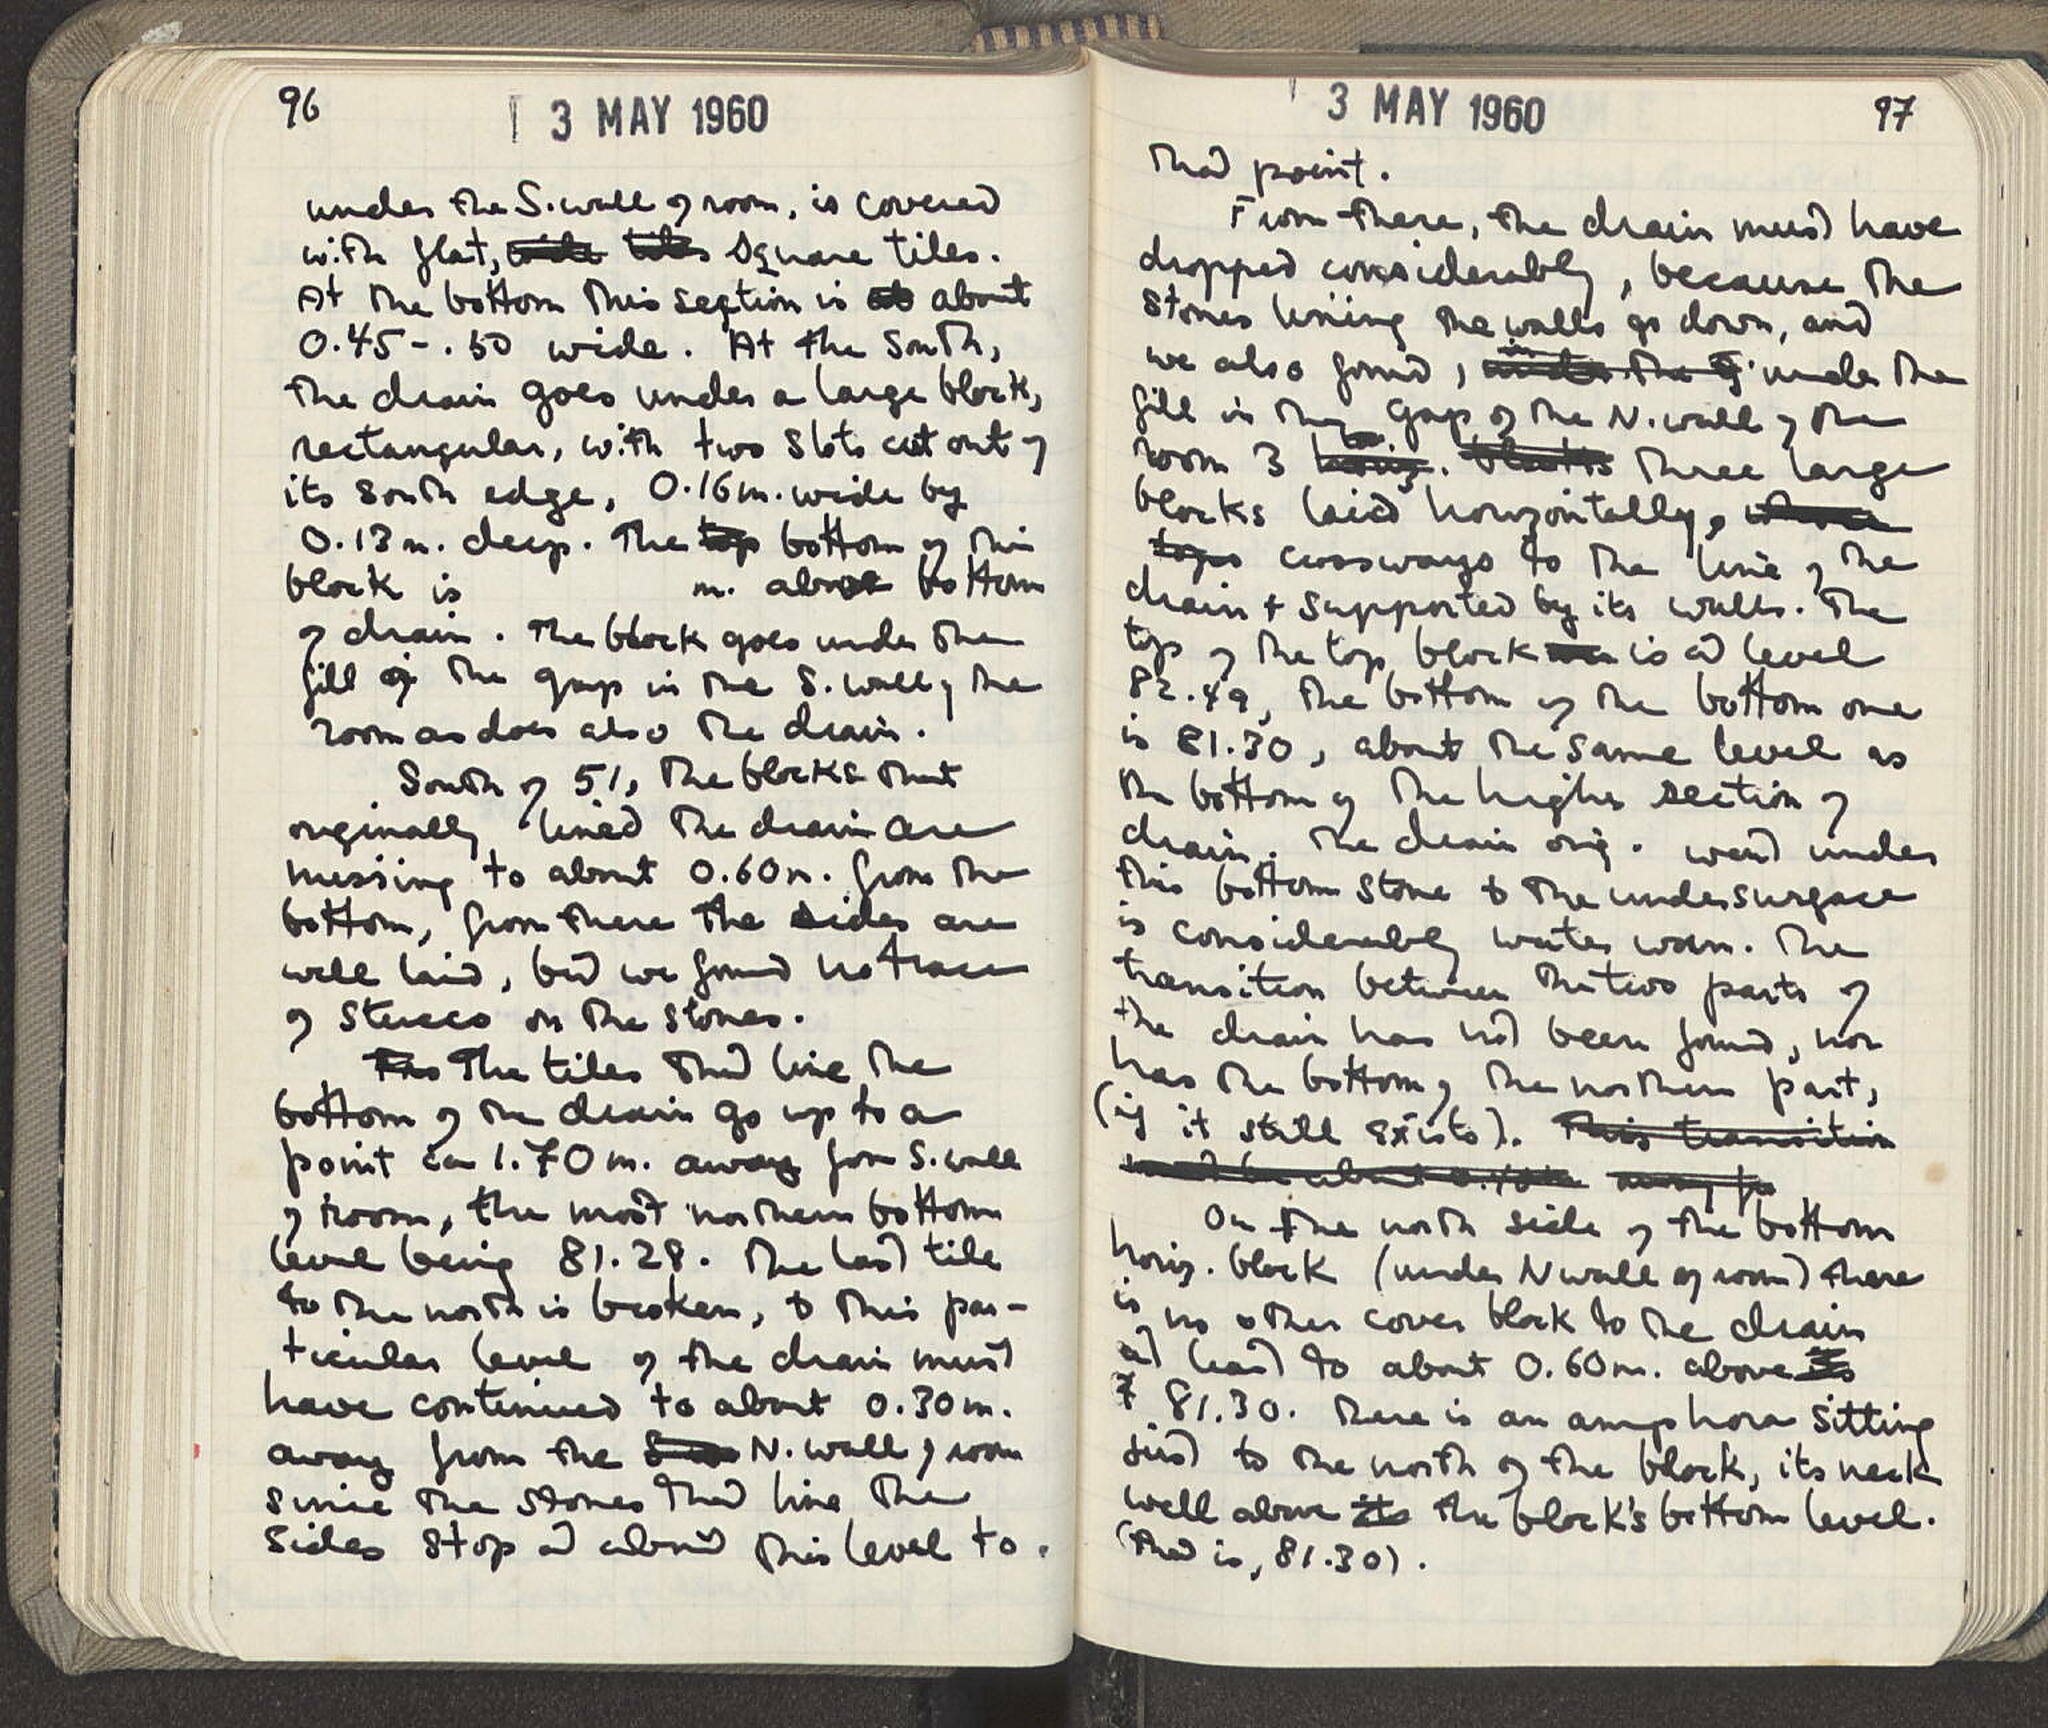 96
3 MAY 1960
under the S. wall of room, is covered
with flat, square tiles.
At the bottom this section is about
0.45-.50 wide. At the South,
the drain goes under a large block,
rectangular, with two slots cut out of
its south edge, 0.16m. wide by
0.13m. deep. The top bottom of this
block is m. above bottom
of drain. The block goes under the
fill of the gap in the S. wall of the
room as does also the drain.
South of 51, the blocks that
originally lined the drain are
missing to about 0.60m. from the
bottom, from there the sides are
well laid, but we found no trace
of stucco on the stones.
The tiles that line the
bottom of the drain go up to a
point ca 1.70m. away from S. wall
of room, the most northern bottom
level being 81.28. The last tile
to the north is broken, & this par-
ticular level of the drain must
have continued to about 0.30m.
away from the N. wall of room
since the stones that line the
sides stop at about this level to.
3 MAY 1960
97
that point.
From there, the drain must have
dropped considerably, because the
stones lining the walls go down, and
we also found, in under the under the
fill in the gap of the N. wall of the
room 3 horiz. blocks three large
blocks laid horizontally, whose
tops crossways to the line of the
drain + supported by its walls. The
top of the top block is at level
82.49, the bottom of the bottom one
is 81.30, about the same level as
the bottom of the higher section of
drain. The drain orig. went under
this bottom stone & the undersurface
is considerably water worn. The
transition between the two parts of
the drain has not been found, nor
has the bottom of the northern part,
(if it still exists). This transition
must be about away fr
On the north side of the bottom
horiz. block (under N wall of room) there
is no other cover block to the drain
at least to about 0.60m. above
81.30. There is an amphora sitting
just to the north of the block, its neck
well above its the block's bottom level.
(that is, 81.30).